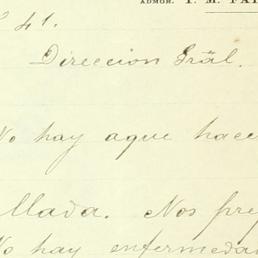 ADMOR. T. M.
41.
Direccion Gräl.
No hay aque hace
llada. Nos pre
No hay enfermeda